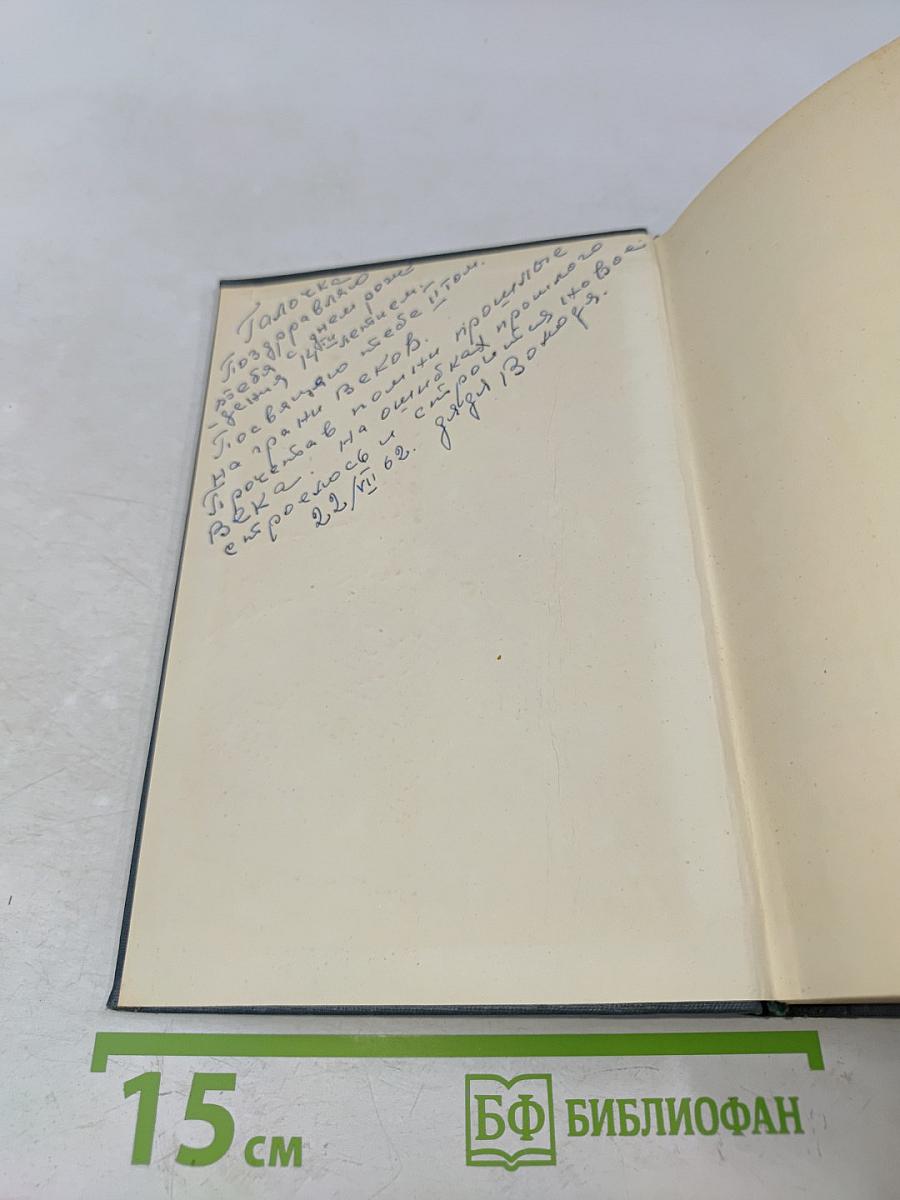 Галочка
Поздравляю
тебя с днем рож
-дения 14ти летием.
Посвящаю тебе II том.
На грани веков.
Прочетав помни прошлые
века. На ошибках прошлого
строелось и строится новое.
22/VII 62. дядя Володя.
15 см
БФ БИБЛИОФАН